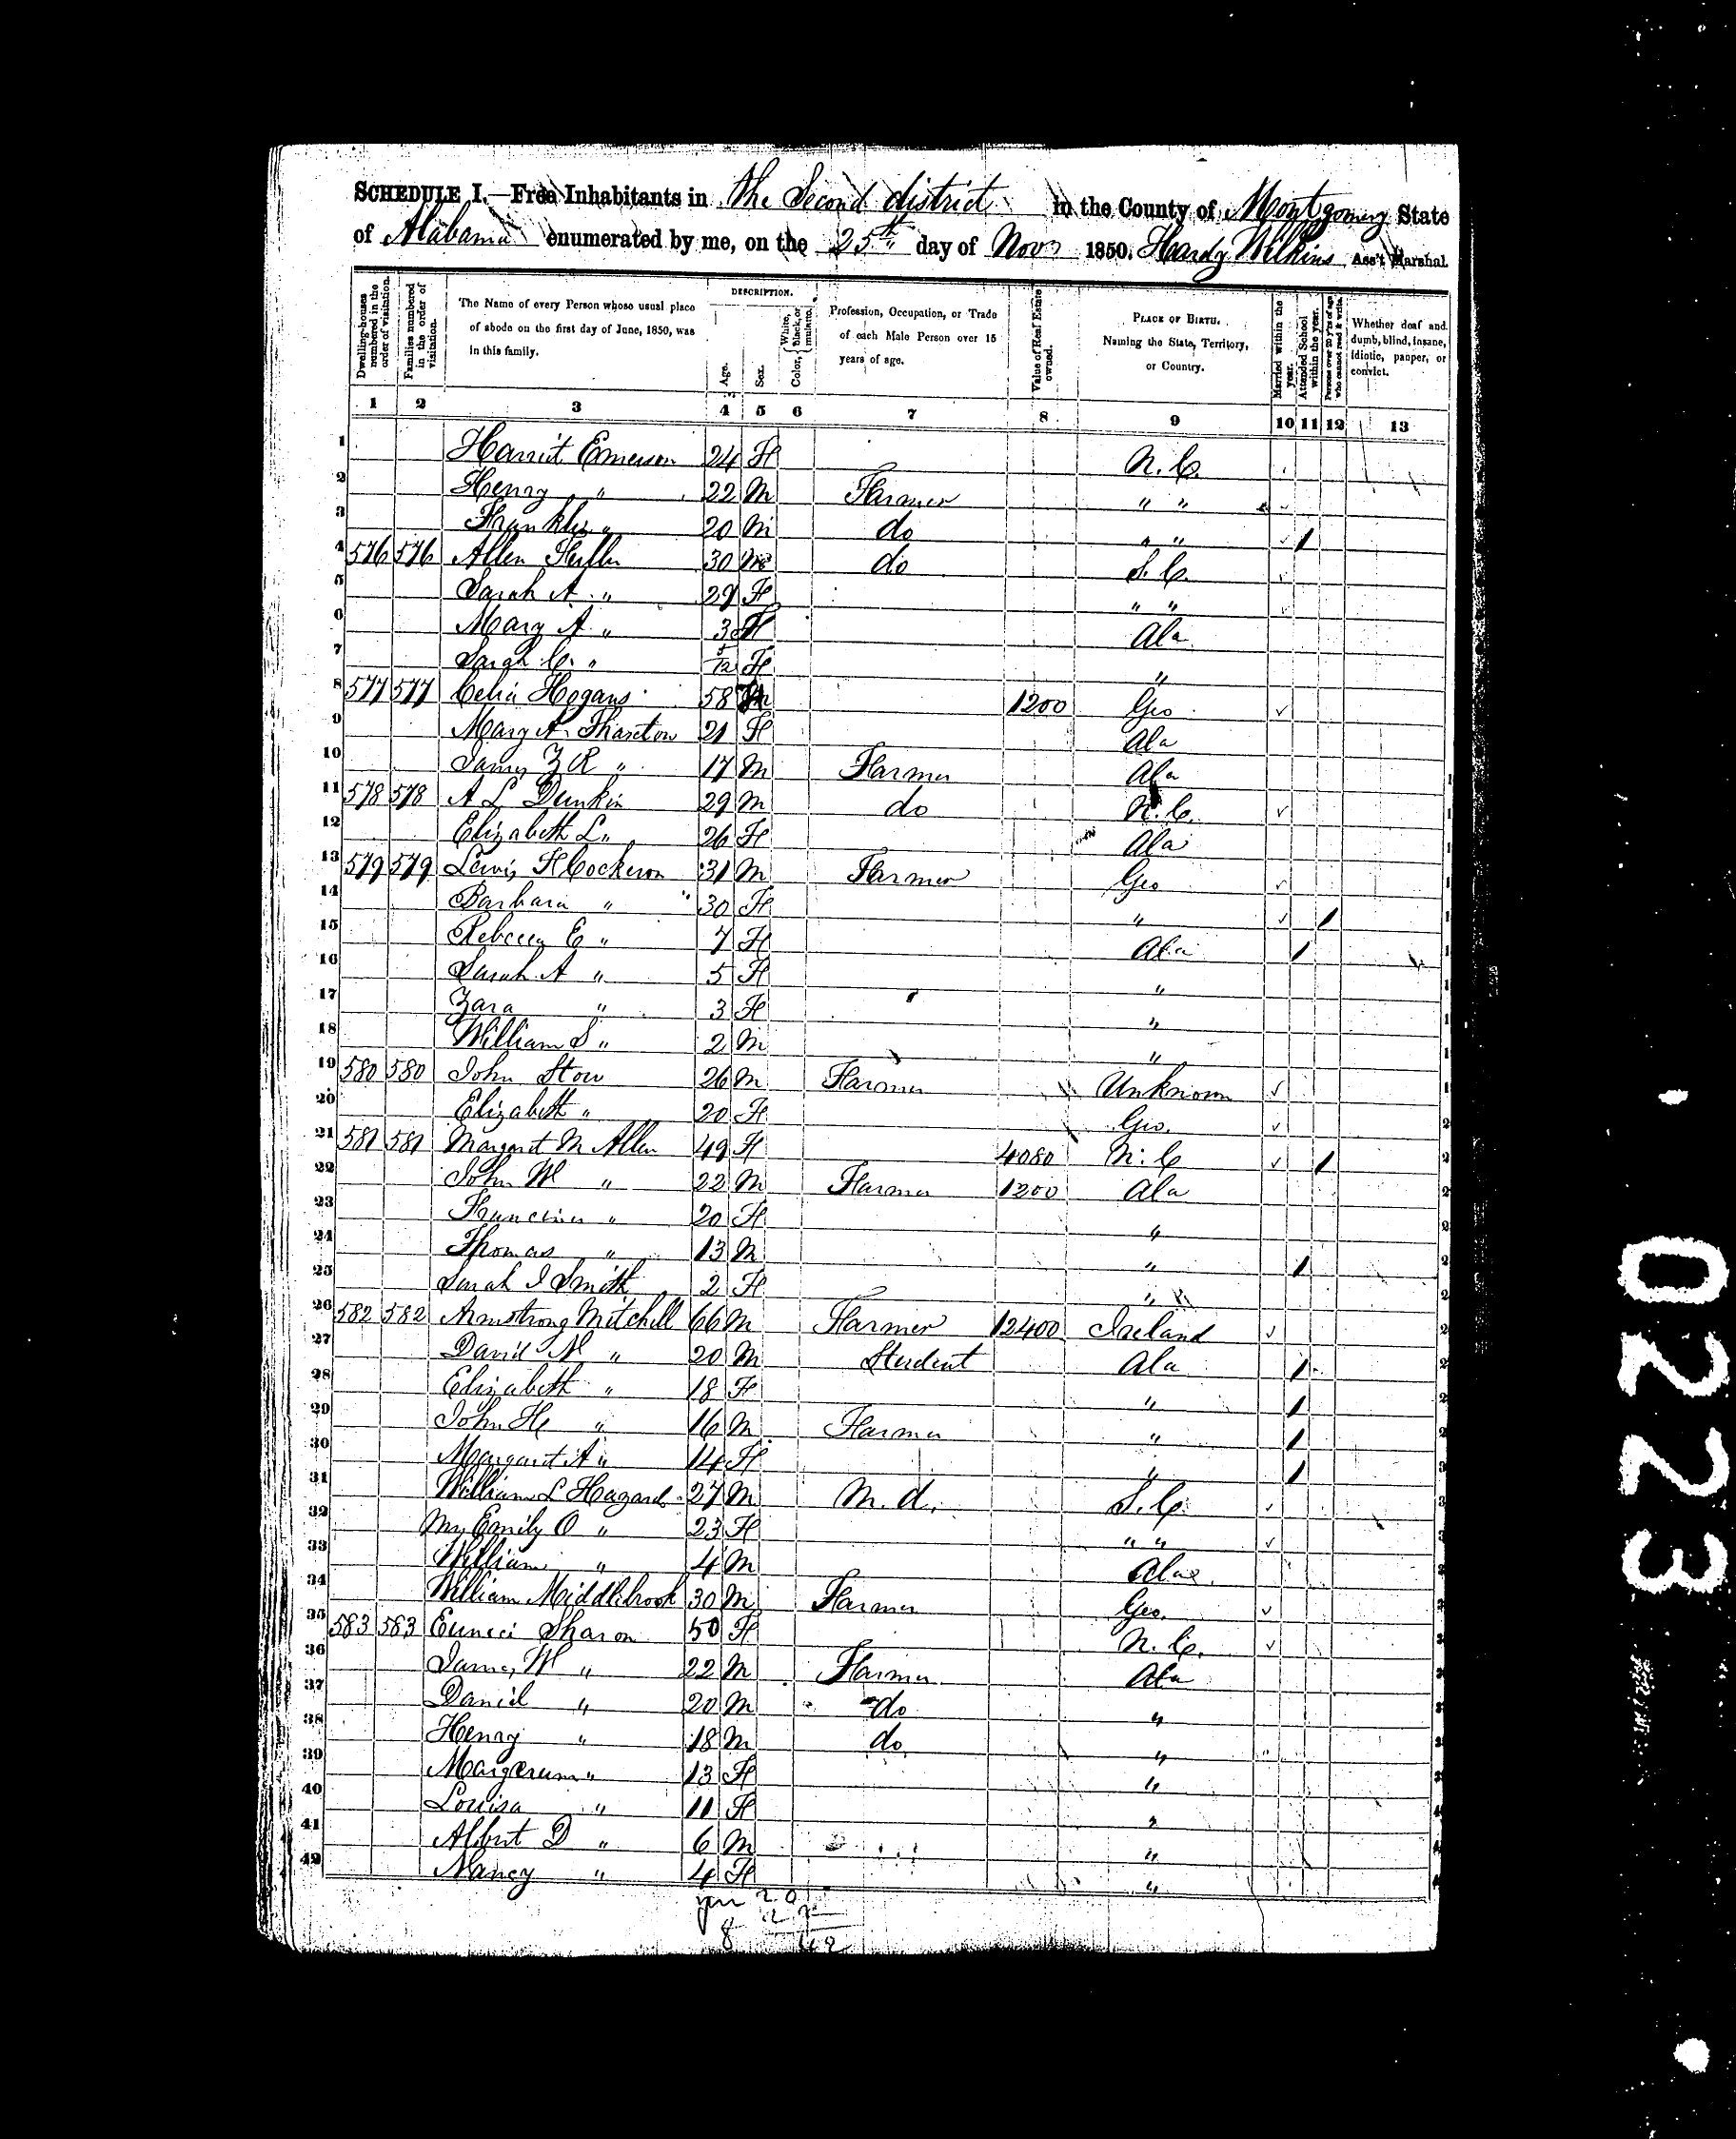 SCHEDULE I.—Free Inhabitants in The Second district in the County of Montgomery State
of Alabama enumerated by me, on the 25th day of Nov 1850. Hardy Wilkins Ass't Marshal.
Dwelling-houses numbered in the order of visitation. Families numbered in the order of visitation. The Name of every Person whose usual place of abode on the first day of June, 1850, was in this family. DESCRIPTION. Age. Sex. Color, White, black, or mulatto. Profession, Occupation, or Trade of each Male Person over 15 years of age. Value of Real Estate owned. PLACE OF BIRTH. Naming the State, Territory, or Country. Married within the year. Attended School within the year. Persons over 20 y'rs of age who cannot read & write. Whether deaf and dumb, blind, insane, idiotic, pauper, or convict.
1 2 3 4 5 6 7 8 9 10 11 12 13
1 Harriet Emerson 24 F N.C.
2 Henry " 22 M Farmer " "
3 Franklin " 20 M do " " /
4 576 576 Allen 30 M do S.C.
5 Sarah A " 29 F " "
6 Mary A " 3 F Ala
7 Sarah C. " 5/12 F "
8 577 577 Celia Hogans 58 1200 Geo ✓
9 Mary A. Tharstow 21 F Ala
10 James Z R " 17 M Farmer Ala
11 578 578 A L Dunkin 29 M do N.C. ✓
12 Elizabeth L " 26 F Ala
13 579 579 Lewis H Cockeron 31 M Farmer Geo ✓
14 Barbara " 30 F " ✓ /
15 Rebecca E " 7 F Ala /
16 Sarah A " 5 F "
17 Zara " 3 F "
18 William S " 2 M "
19 580 580 John Stow 26 M Farmer Unknown ✓
20 Elizabeth " 20 F Geo. ✓
21 581 581 Margaret M Allen 49 F 4080 N.C ✓ /
22 John W " 22 M Farmer 1200 Ala
23 " 20 F "
24 Thomas " 13 M " /
25 Sarah J Smith 2 F "
26 582 582 Armstrong Mitchell 66 M Farmer 12400 Ireland ✓
27 David N " 20 M Student Ala /
28 Elizabeth " 18 F " /
29 John H " 16 M Farmer " /
30 Margaret A " 14 F " /
31 William L Hagard 27 M M.d. S.C. ✓
32 Emily O " 23 F " " ✓
33 William " 4 M Ala
34 William Middlebrook 30 M Farmer Geo. ✓
35 583 583 Euneci Sharon 50 F N.C. ✓
36 James W " 22 M Farmer Ala
37 Daniel " 20 M do "
38 Henry " 18 M do "
39 Margerum " 13 F "
40 Louisa " 11 F "
41 Albert D " 6 M "
42 Nancy " 4 F "
0223